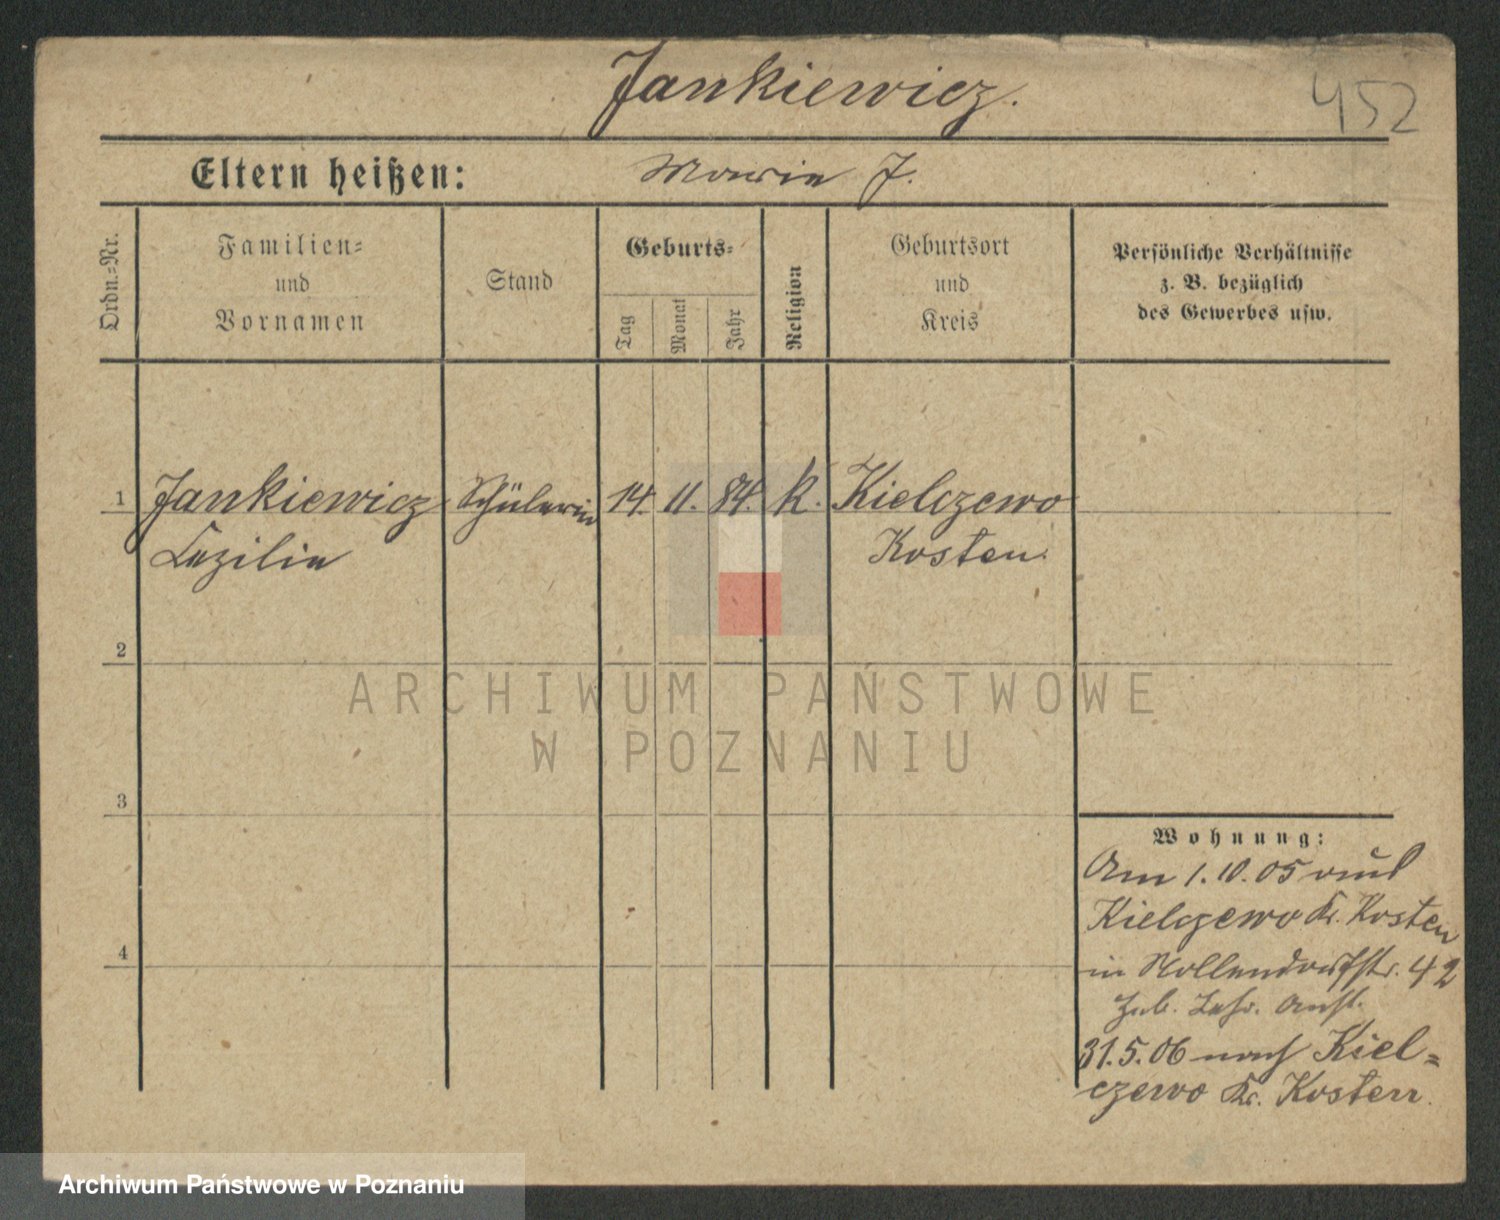 Jankiewicz.
452
Eltern heißen: Maria J.
Ordn.-Nr.
Familien-
und
Vornamen
Stand
Geburts-
Tag
Monat
Jahr
Religion
Geburtsort
und
Kreis
Persönliche Verhältnisse
z. B. bezüglich
des Gewerbes usw.
1 Jankiewicz Schülerin 14. 11. 84. k. Kielczewo
Cezilia Kosten.
2
ARCHIWUM PAŃSTWOWE
W POZNANIU
3
Wohnung:
Am 1.10.05
Kielczewo Kr. Kosten
in Nollendorfstr. 42
31.5.06 nach Kiel-
czewo Kr. Kosten.
4
Archiwum Państwowe w Poznaniu